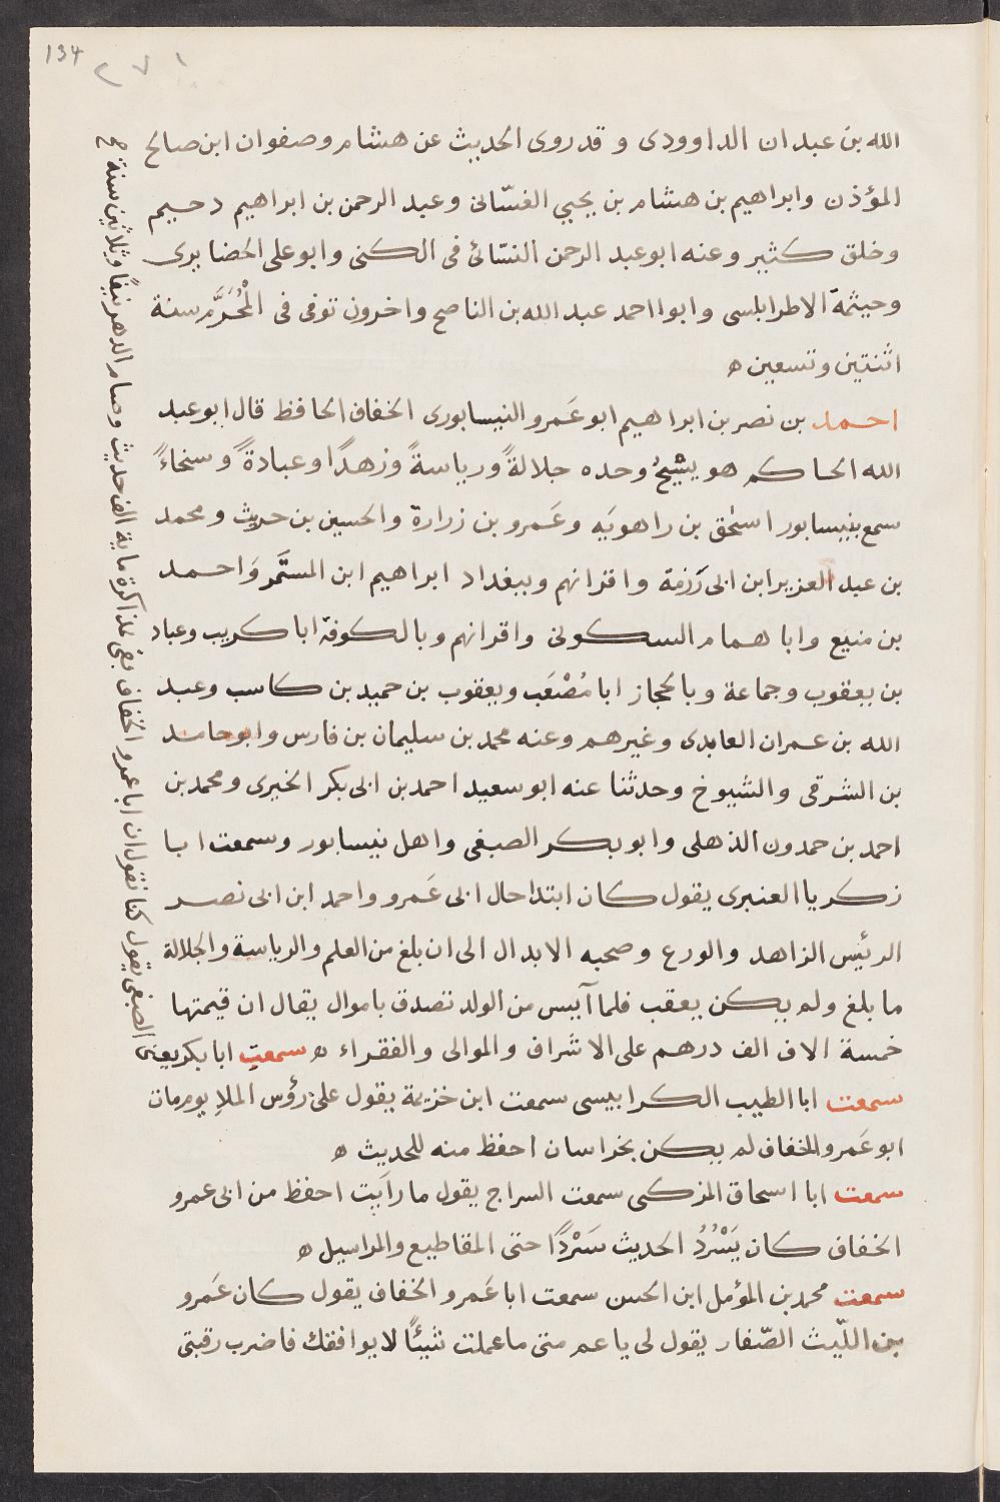 134
٢٧١
الله بن عبدان الداوودى و قد روى الحديث عن هشام وصفوان ابن صالح
المؤذن وابراهيم بن هشام بن يحيي الغسّانى وعبد الرحمن بن ابراهيم دحيم
وخلق كثير وعنه ابو عبد الرحمن النسّائى فى الكنى وابو على الحضايرى
وحيثمة الاطرابلسى وابوا احمد عبد الله بن الناصح واخرون توفى فى الْمُحَرَّم سنة
اثنتين وتسعين ه
احمد بن نصر بن ابراهيم ابو عَمرو النيسابورى الخفاف الحافظ قال ابو عبد
الله الحاكم هو يشيخُ وحده جلالةً ورياسةً وزهدًا وعبادةً وسنحاءً
سمع بنيسابور اسحٰق بن راهويَه وعَمرو بن زرارة والحسين بن حريث ومحمد
بن عبد العزيز ابن ابى رَزمة واقرانهم وببغداد ابراهيم ابن المستَّمر وَاحمد
بن منيع وابا همام السكونى واقرانهم وبالكوفة ابا كريب وعباد
بن يعقوب وجماعة وبالحجاز ابا مُصْعَب ويعقوب بن حميد بن كاسب وعبد
الله بن عمران العابدى وغيرهم وعنه محمد بن سليمان بن فارس وابو حامد
بن الشرقى والشيوخ وحدثنا عنه ابو سعيد احمد بن ابى بكر الخيرى ومحمد بن
احمد بن حمدون الذهلى وابو بكر الصبغى واهل نيسابور وسمعت ابا
زكريا العنبرى يقول كان ابتدا حال ابى عَمرو واحمد ابن ابى نصر
الرئيس الزاهد والورع وصحبه الابدال الى ان بلغ من العلم والرياسة والجلالة
ما بلغ ولم يكن يعقب فلما آيس من الولد تصدق باموال يقال ان قيمتها
خمسة الاف الف درهم على الاشراف والموالى والفقراء ه سمعت ابا بكر يعنى
الصبغى يقول كنا نقول ان ابا عمرو الخفاف يفى بمذاكرة ماية الف حديث وصام الدهر نيفًا وثلاثين سنة صح
سمعت ابا الطيب الكرابيسى سمعت ابن خزيمة يقول على رؤس الملإ يوم مات
ابو عَمرو الخفاف لم يكن بخراسان احفظ منه للحديث ه
سمعت ابا اسحاق المزكى سمعت السراج يقول ما رأيت احفظ من ابى عمرو
الخفاف كان يَسْرُدُ الحديث سَرْدًا حتى المقاطيع والمراسيل ه
سمعت محمد بن المؤمل ابن الحسن سمعت ابا عَمرو الخفاف يقول كان عَمرو
بن اللّيث الصّفار يقول لى يا عم متى ما عملت شيئًا لا يوافقك فاضرب رقبتى